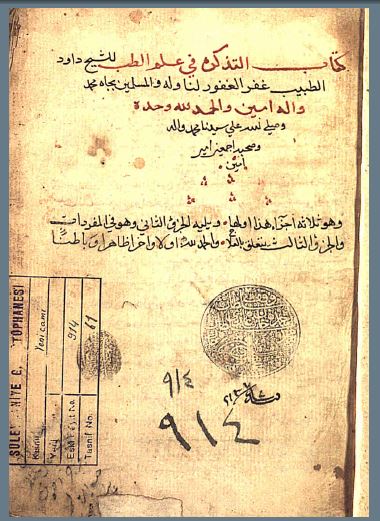 كتاب التذكره في علم الطب للشيخ داود
الطبيب غفر الغفور لنا وله والمسلمين بجاه محمد
واله امين والحمد لله وحده
وصلى الله على سيدنا محمد واله
وصحبه اجمعين امين
امين
وهو ثلاثه اجزاء هذا اولها ويليه الجزؤ الثاني وهو في المفردات
والجزؤ الثالث يتعلق بالعلاج والحمد لله اولا واخرا ظاهرا وباطنا
SULEYMANIYE G. KÜTÜPHANESİ
Kısmı Yeni cami
Yeni
Eski Kayıt No. 914
Tasnif No. 61
٩١٤
٩١٤